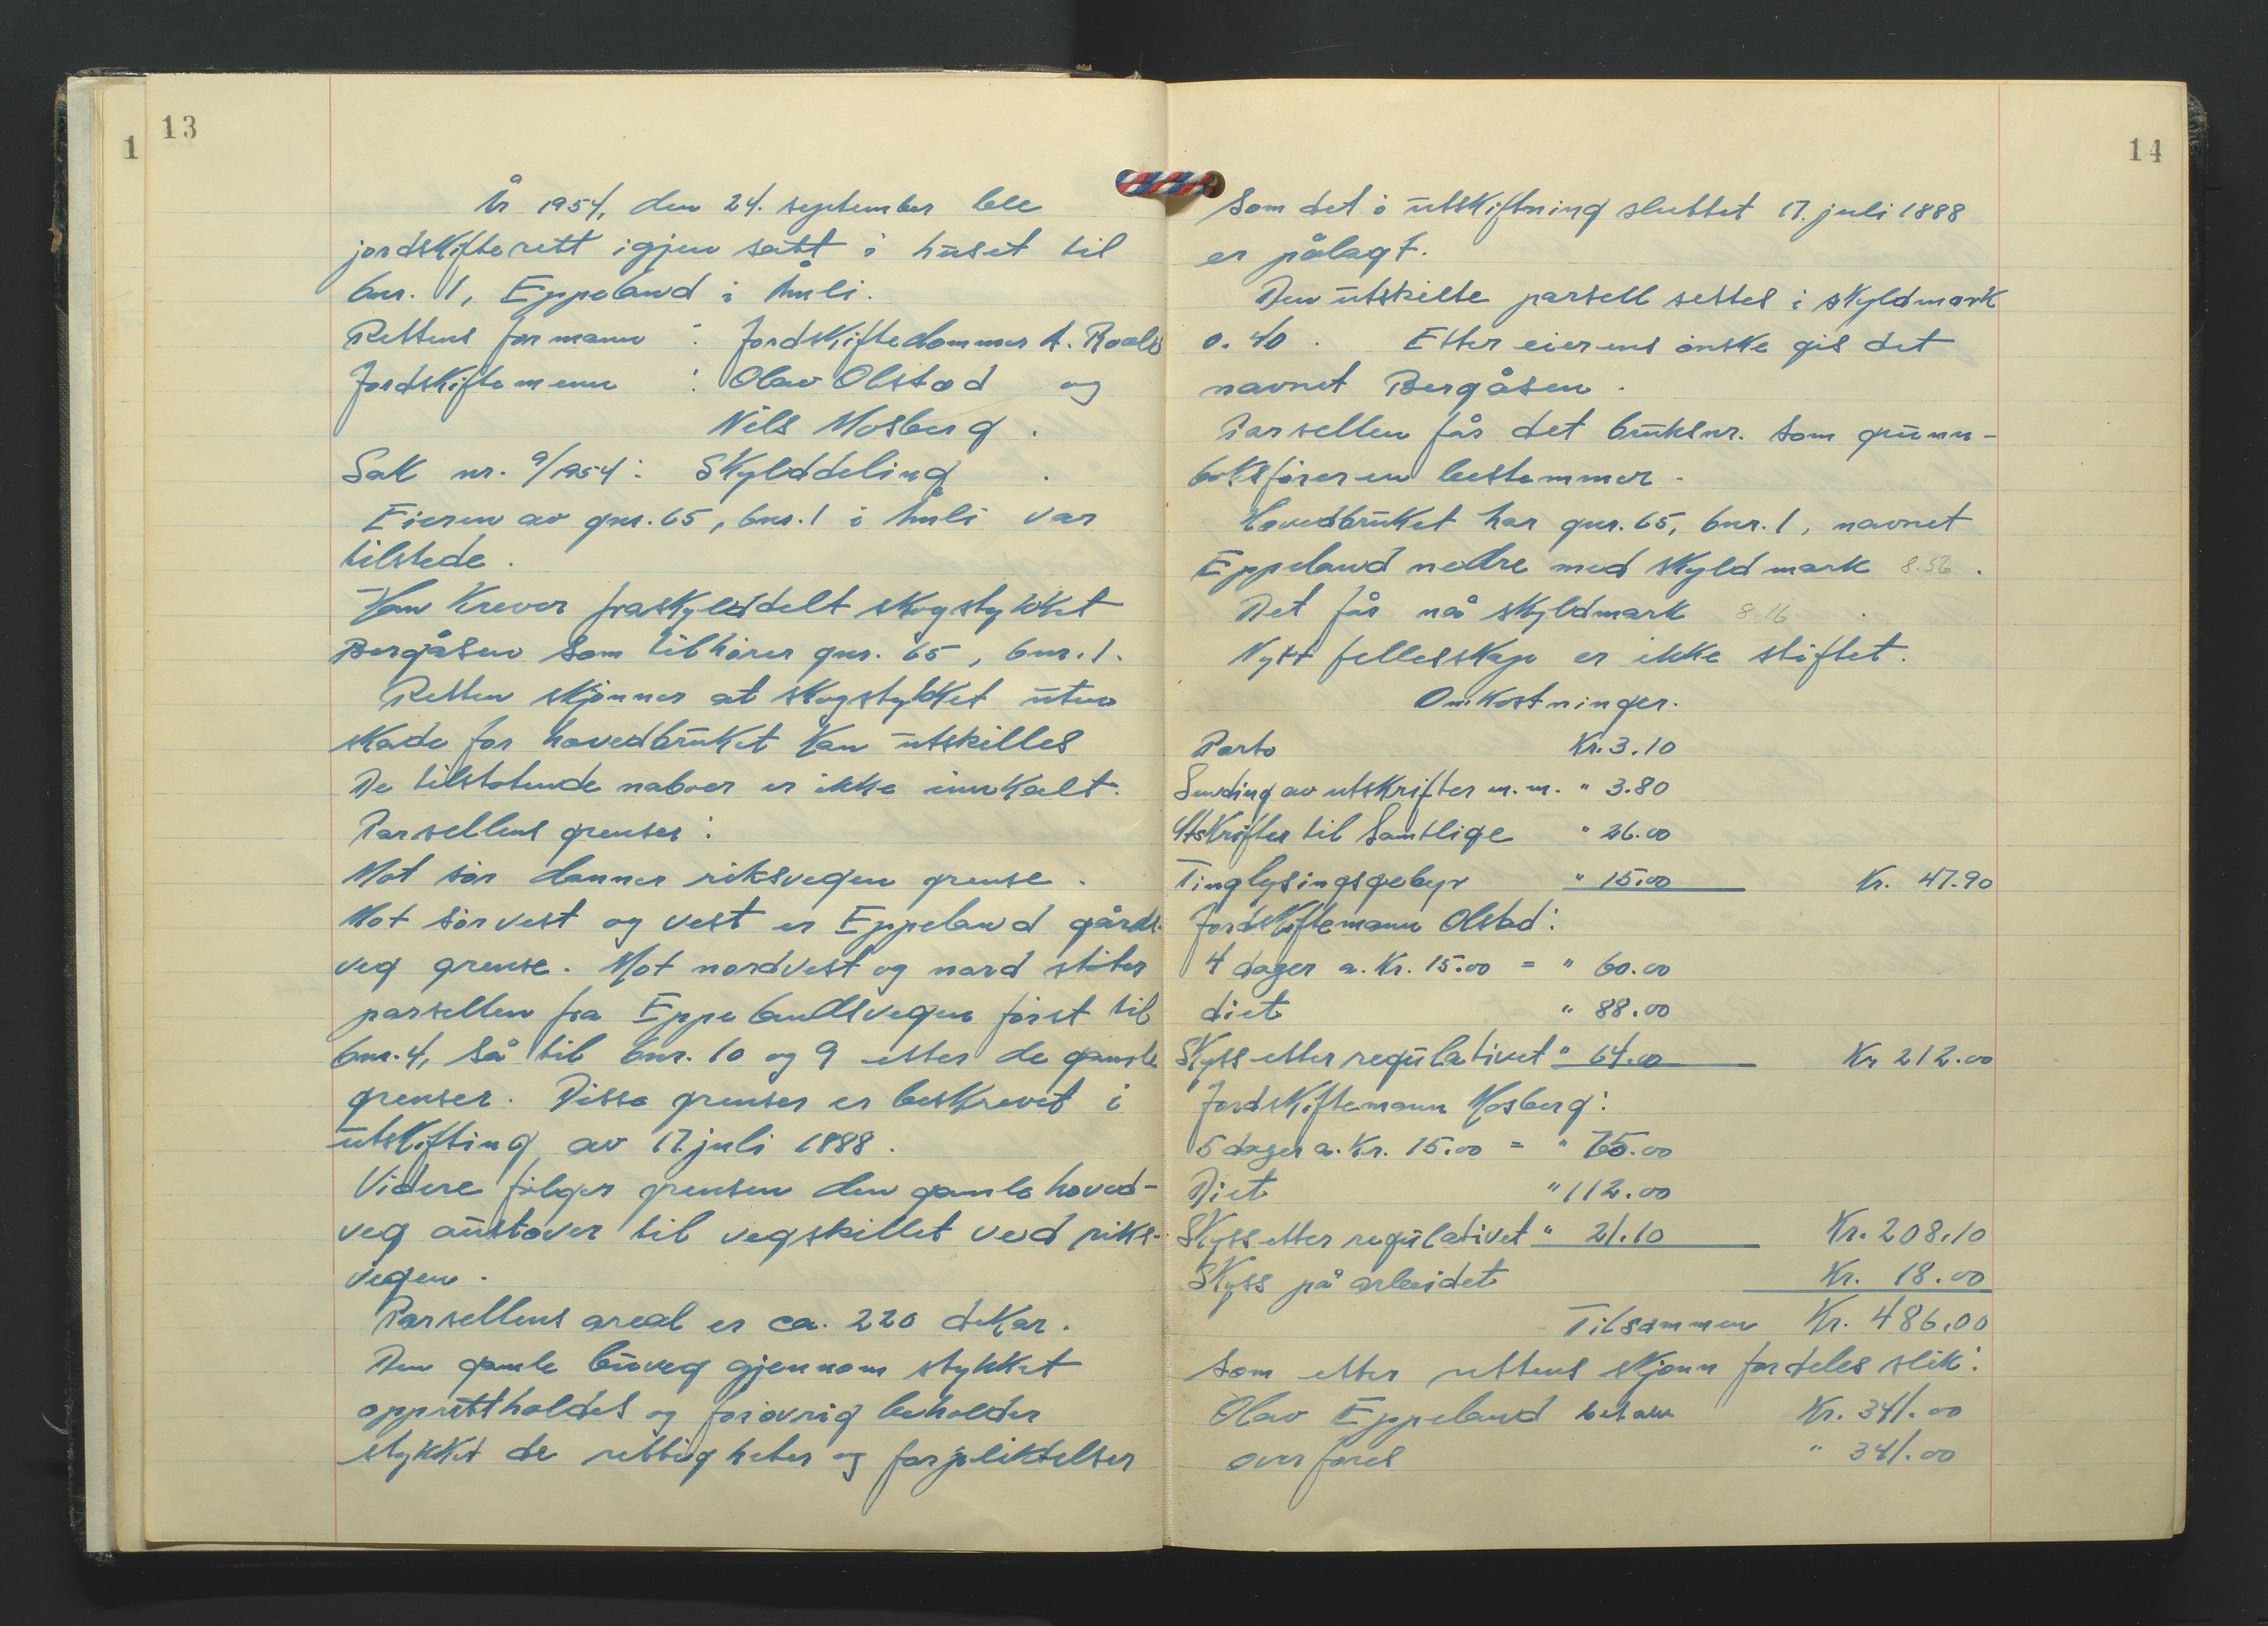 1
13
År 1954, den 24. september ble
jordskifterett igjen satt i huset til
bnr. 1, Eppeland i Åmli.
Rettens formann : Jordskiftedommer A. Roalv
Jordskiftemenn : Olav Olstad og
Nils Mosberg.
Sak nr. 9/1954: Skylddeling.
Eieren av gnr. 65, bnr. 1 i Åmli var
tilstede.
Han krever fraskylddelt skogstykket
Bergåsen som tilhører gnr. 65, bnr. 1.
Retten skjønner at skogstykket uten
skade for hovedbruket kan utskilles
De tilstøtende naboer er ikke innkalt.
Parsellens grenser:
Mot sør danner riksvegen grense.
Mot sørvest og vest er Eppeland gårds-
veg grense. Mot nordvest og nord støter
parsellen fra Eppelandsvegen først til
bnr. 4, så til bnr. 10 og 9 etter de gamle
grenser. Disse grenser er beskrevet i
utskifting av 17. juli 1888.
Videre følger grensen den gamle hoved-
veg austover til vegskillet ved riks-
vegen.
Parsellens areal er ca. 220 dekar.
Den gamle buveg gjennom stykket
opprettholdes og forøvrig beholder
stykket de rettigheter og forpliktelser
14
som det i utskiftning sluttet 17. juli 1888
er pålagt.
Den utskilte parsell settes i skyldmark
0.40. Etter eierens ønske gis det
navnet Bergåsen.
Parsellen får det bruksnr. som grunn-
boksføreren bestemmer.
Hovedbruket har gnr. 65, bnr. 1, navnet
Eppeland nedre med skyldmark 8.56.
Det får nå skyldmark 8.16.
Nytt fellesskap er ikke stiftet.
Omkostninger.
Porto Kr. 3.10
Sending av utskrifter m.m. " 3.80
Utskrifter til samtlige " 26.00
Tinglysingsgebyr " 15.00 Kr. 47.90
Jordskiftemann Olstad:
4 dager a. Kr. 15.00 = " 60.00
diet " 88.00
Skyss etter regulativet " 64.00 Kr 212.00
Jordskiftemann Mosberg:
5 dager a. Kr. 15.00 = " 75.00
Diet " 112.00
Skyss etter regulativet " 21.10 Kr. 208.10
Skyss på arbeidet Kr. 18.00
Tilsammen Kr. 486.00
som etter rettens skjønn fordeles slik:
Olav Eppeland betaler Kr. 341.00
overføres " 341.00